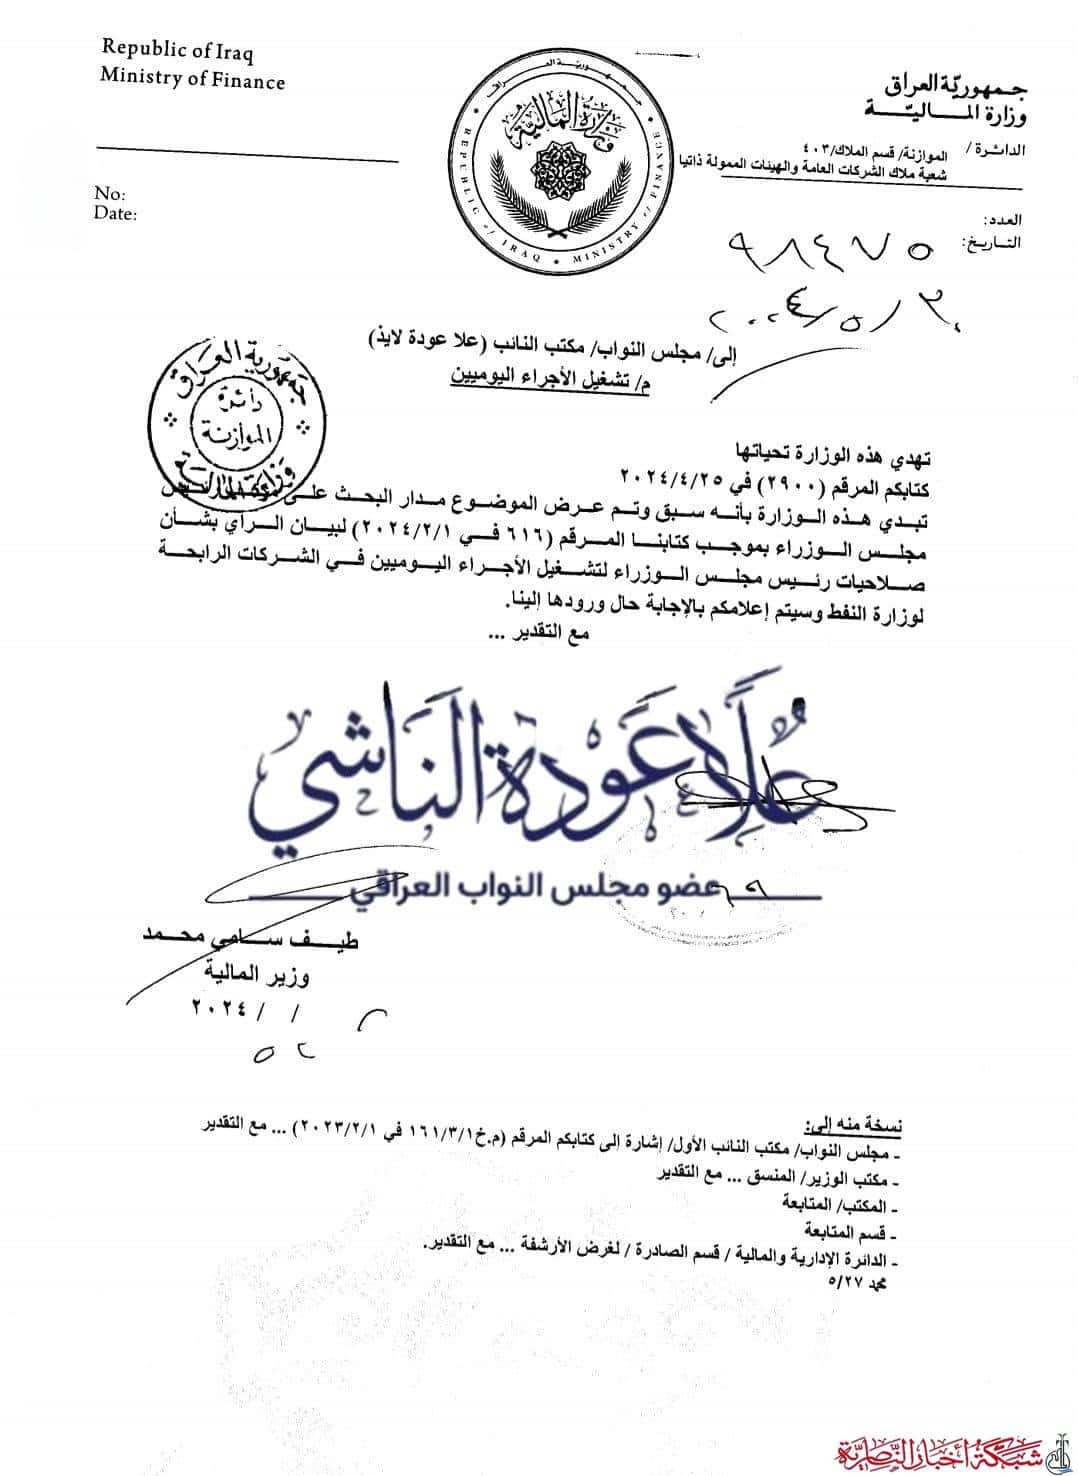 Republic of Iraq
Ministry of Finance
No:
Date:
جمهورية العراق
وزارة المالية
REPUBLIC of IRAQ • MINISTRY of FINANCE
جمهورية العراق
وزارة المالية
الدائرة / الموازنة/ قسم الملاك/ ٤٠٣
شعبة ملاك الشركات العامة والهيئات الممولة ذاتيا
العدد:
التاريخ:
٩٨٤٧٥
٢٠٢٤/٥/٣٠
إلى/ مجلس النواب/ مكتب النائب (علا عودة لايذ)
م/ تشغيل الأجراء اليوميين
جمهورية العراق
دائرة
الموازنة
وزارة المالية
تهدي هذه الوزارة تحياتها
كتابكم المرقم (٢٩٠٠) في ٢٠٢٤/٤/٢٥
تبدي هذه الوزارة بأنه سبق وتم عرض الموضوع مدار البحث على
مجلس الوزراء بموجب كتابنا المرقم (٦١٦ في ٢٠٢٤/٢/١) لبيان الرأي بشأن
صلاحيات رئيس مجلس الوزراء لتشغيل الأجراء اليوميين في الشركات الرابحة
لوزارة النفط وسيتم إعلامكم بالإجابة حال ورودها إلينا.
مع التقدير ...
عُلَا عَودة النَاشي
عضو مجلس النواب العراقي
طيف سامي محمد
وزير المالية
/ / ٢٠٢٤
نسخة منه إلى:
- مجلس النواب/ مكتب النائب الأول/ إشارة إلى كتابكم المرقم (م.خ/١/٣/١٦١ في ٢٠٢٣/٢/١) ... مع التقدير
- مكتب الوزير/ المنسق ... مع التقدير
- المكتب/ المتابعة
- قسم المتابعة
- الدائرة الإدارية والمالية / قسم الصادرة / لغرض الأرشفة ... مع التقدير.
محمد ٥/٢٧
شبكة أخبار الناصرية